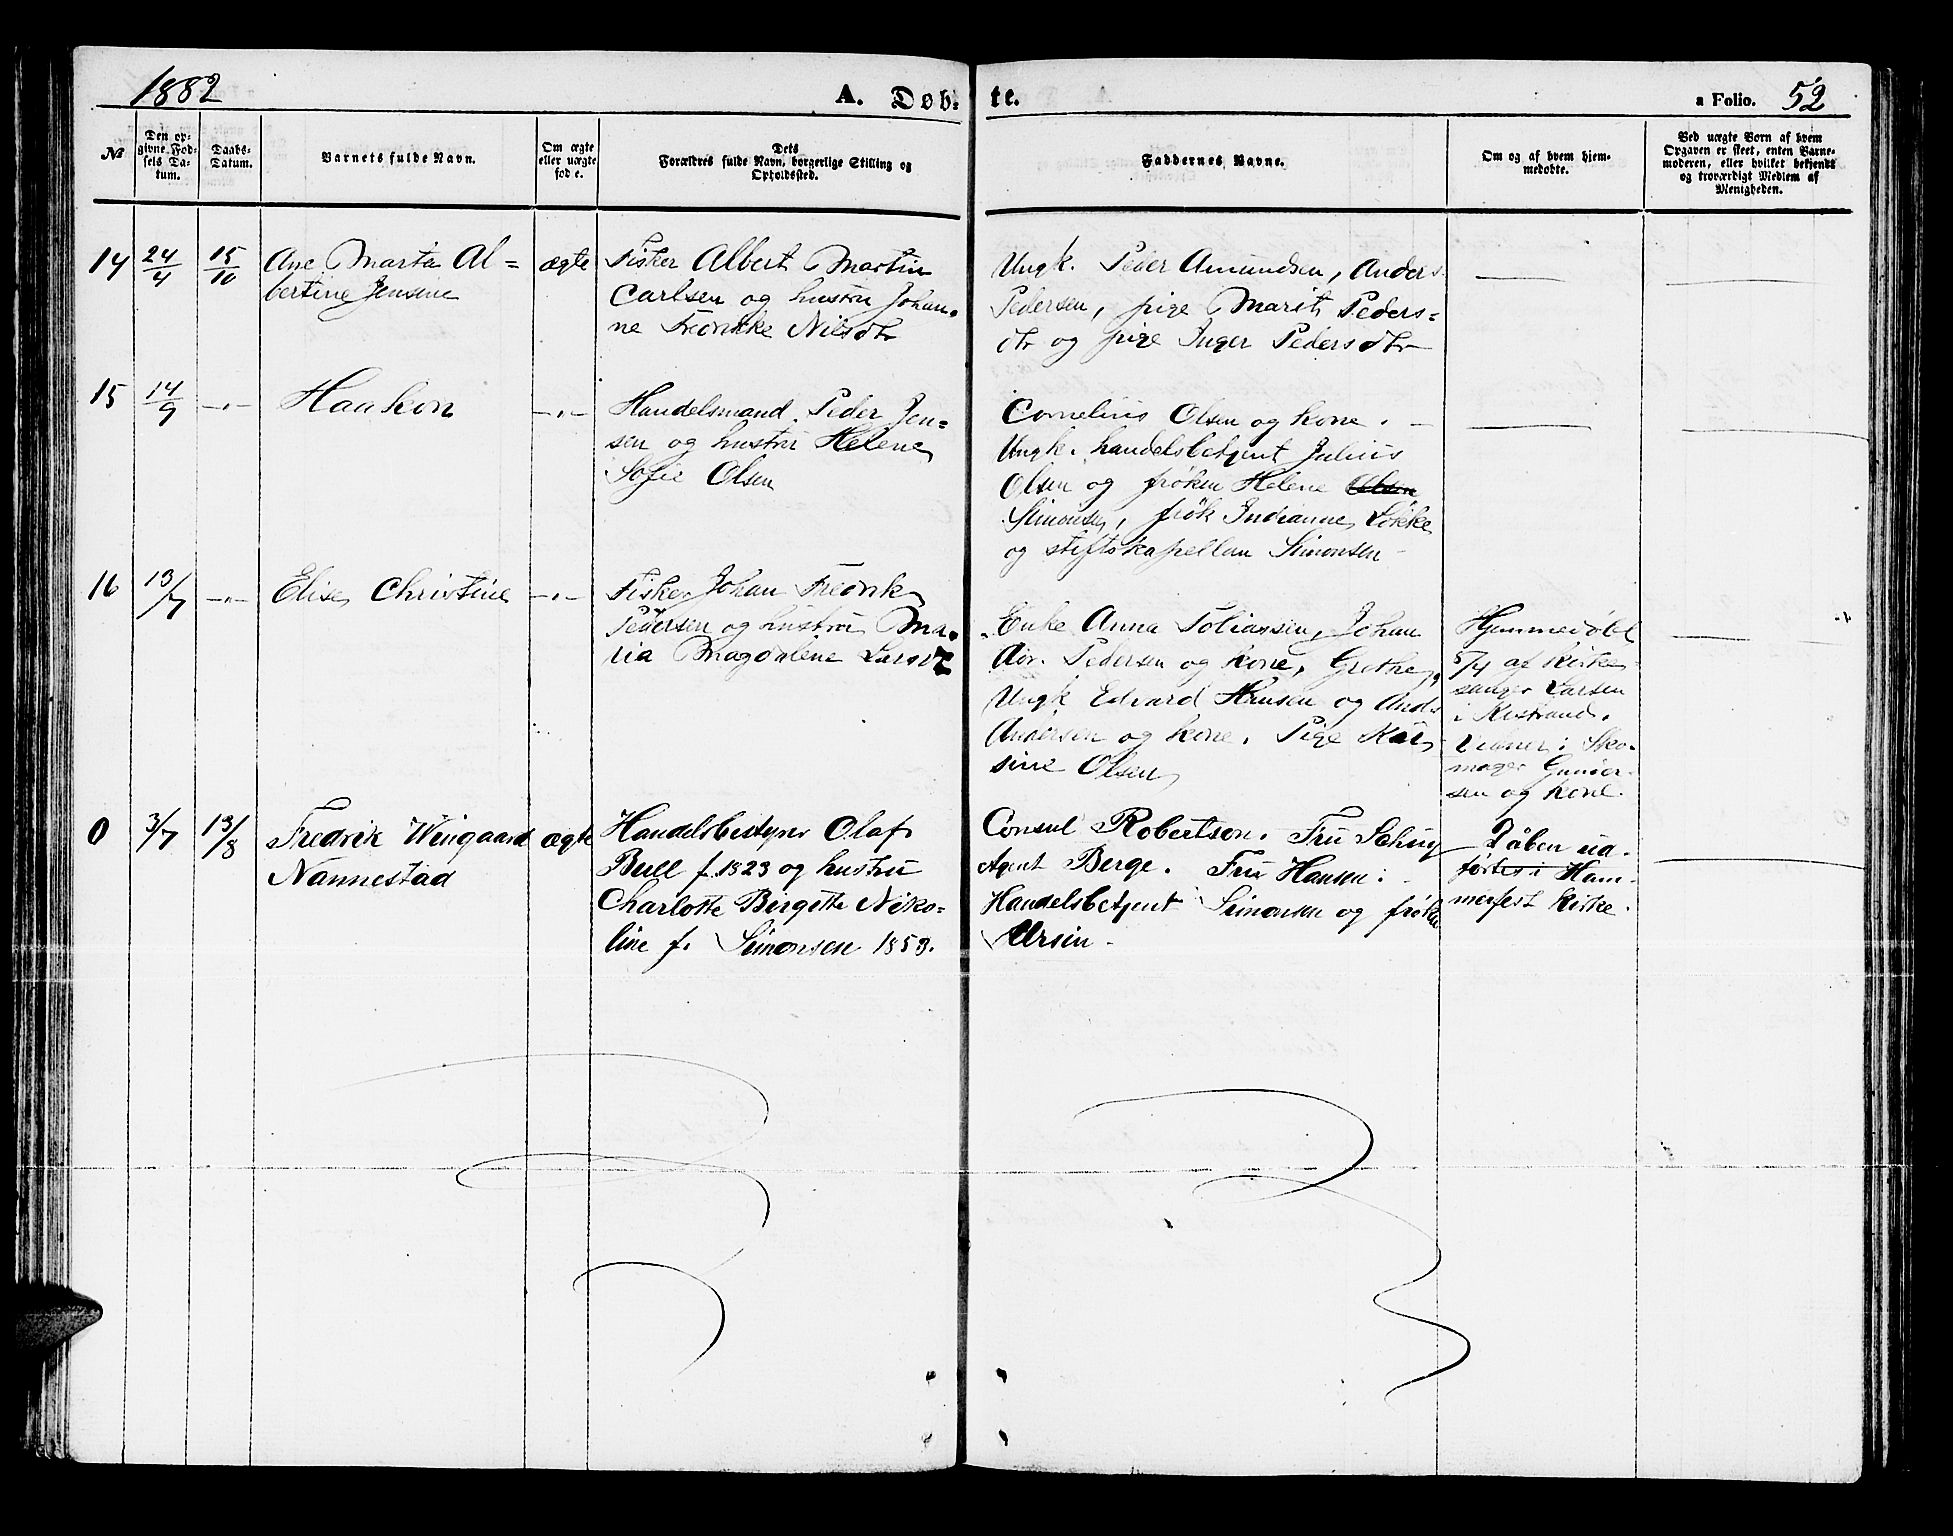 1882 A. Døb-
te. a Folio. 52
№
Den op-
givne Fød-
sels Da-
tum.
Daabs-
Datum.
Barnets fulde Navn.
Om ægte
eller uægte
fød e.
Dets
Forældres fulde Navn, borgerlige Stilling og
Opholdssted.
Faddernes Navne.
Om og af hvem hjem-
medøbte.
Ved uægte Børn af hvem
Opgaven er skeet, enten Barne-
moderen, eller hvilket bekjendt
og troværdigt Medlem af
Menigheden.
14
24/4
15/10
Ane Marta Al=
bertine Jensine
ægte
Fisker Albert Martin
Carlsen og hustru Johan-
ne Fredrikke Nilsdtr
Ungk. Peder Amundsen, Anders
Pedersen, pige Marit Peders=
dtr og pige Inger Pedersdtr
15
14/9
—„—
Haakon
—„—
Handelsmand Peder Jen=
sen og hustru Helene
Sofie Olsen
Cornelius Olsen og kone.
Ungk. handelsbetjent Julius
Olsen og frøken Helene Olsen
Simonsen, frøk Indianne Løkke
og stiftskapellan Simonsen
16
13/7
—„—
Elise Christine
—„—
Fisker Johan Fredrik
Pedersen og hustru Ma-
ria Magdalene Larsdt
Enke Anna Tobiassen, Johan
Adr. Pedersen og kone, Grethe,
Ungk Edvard Hansen og And.
Andersen og kone. Pige Kar
sine Olsen
Hjemmedøbt
5/7 af kirke-
sanger Larsen
i Kistrand.
Vidner: Sko-
mager Gunder-
sen og kone.
0
3/7
13/8
Fredrik Wingaard
Nannestad
ægte
Handelsbestyrer Olaf
Bull f. 1823 og hustru
Charlotte Birgitte Niko=
line f. Simonsen 1853.
Consul Robertson. Fru
Agent Berge. Fru Hansen.
Handelsbetjent Simonsen og frøken
Ursin
Dåben ud-
førtes i Ham-
merfest kirke.